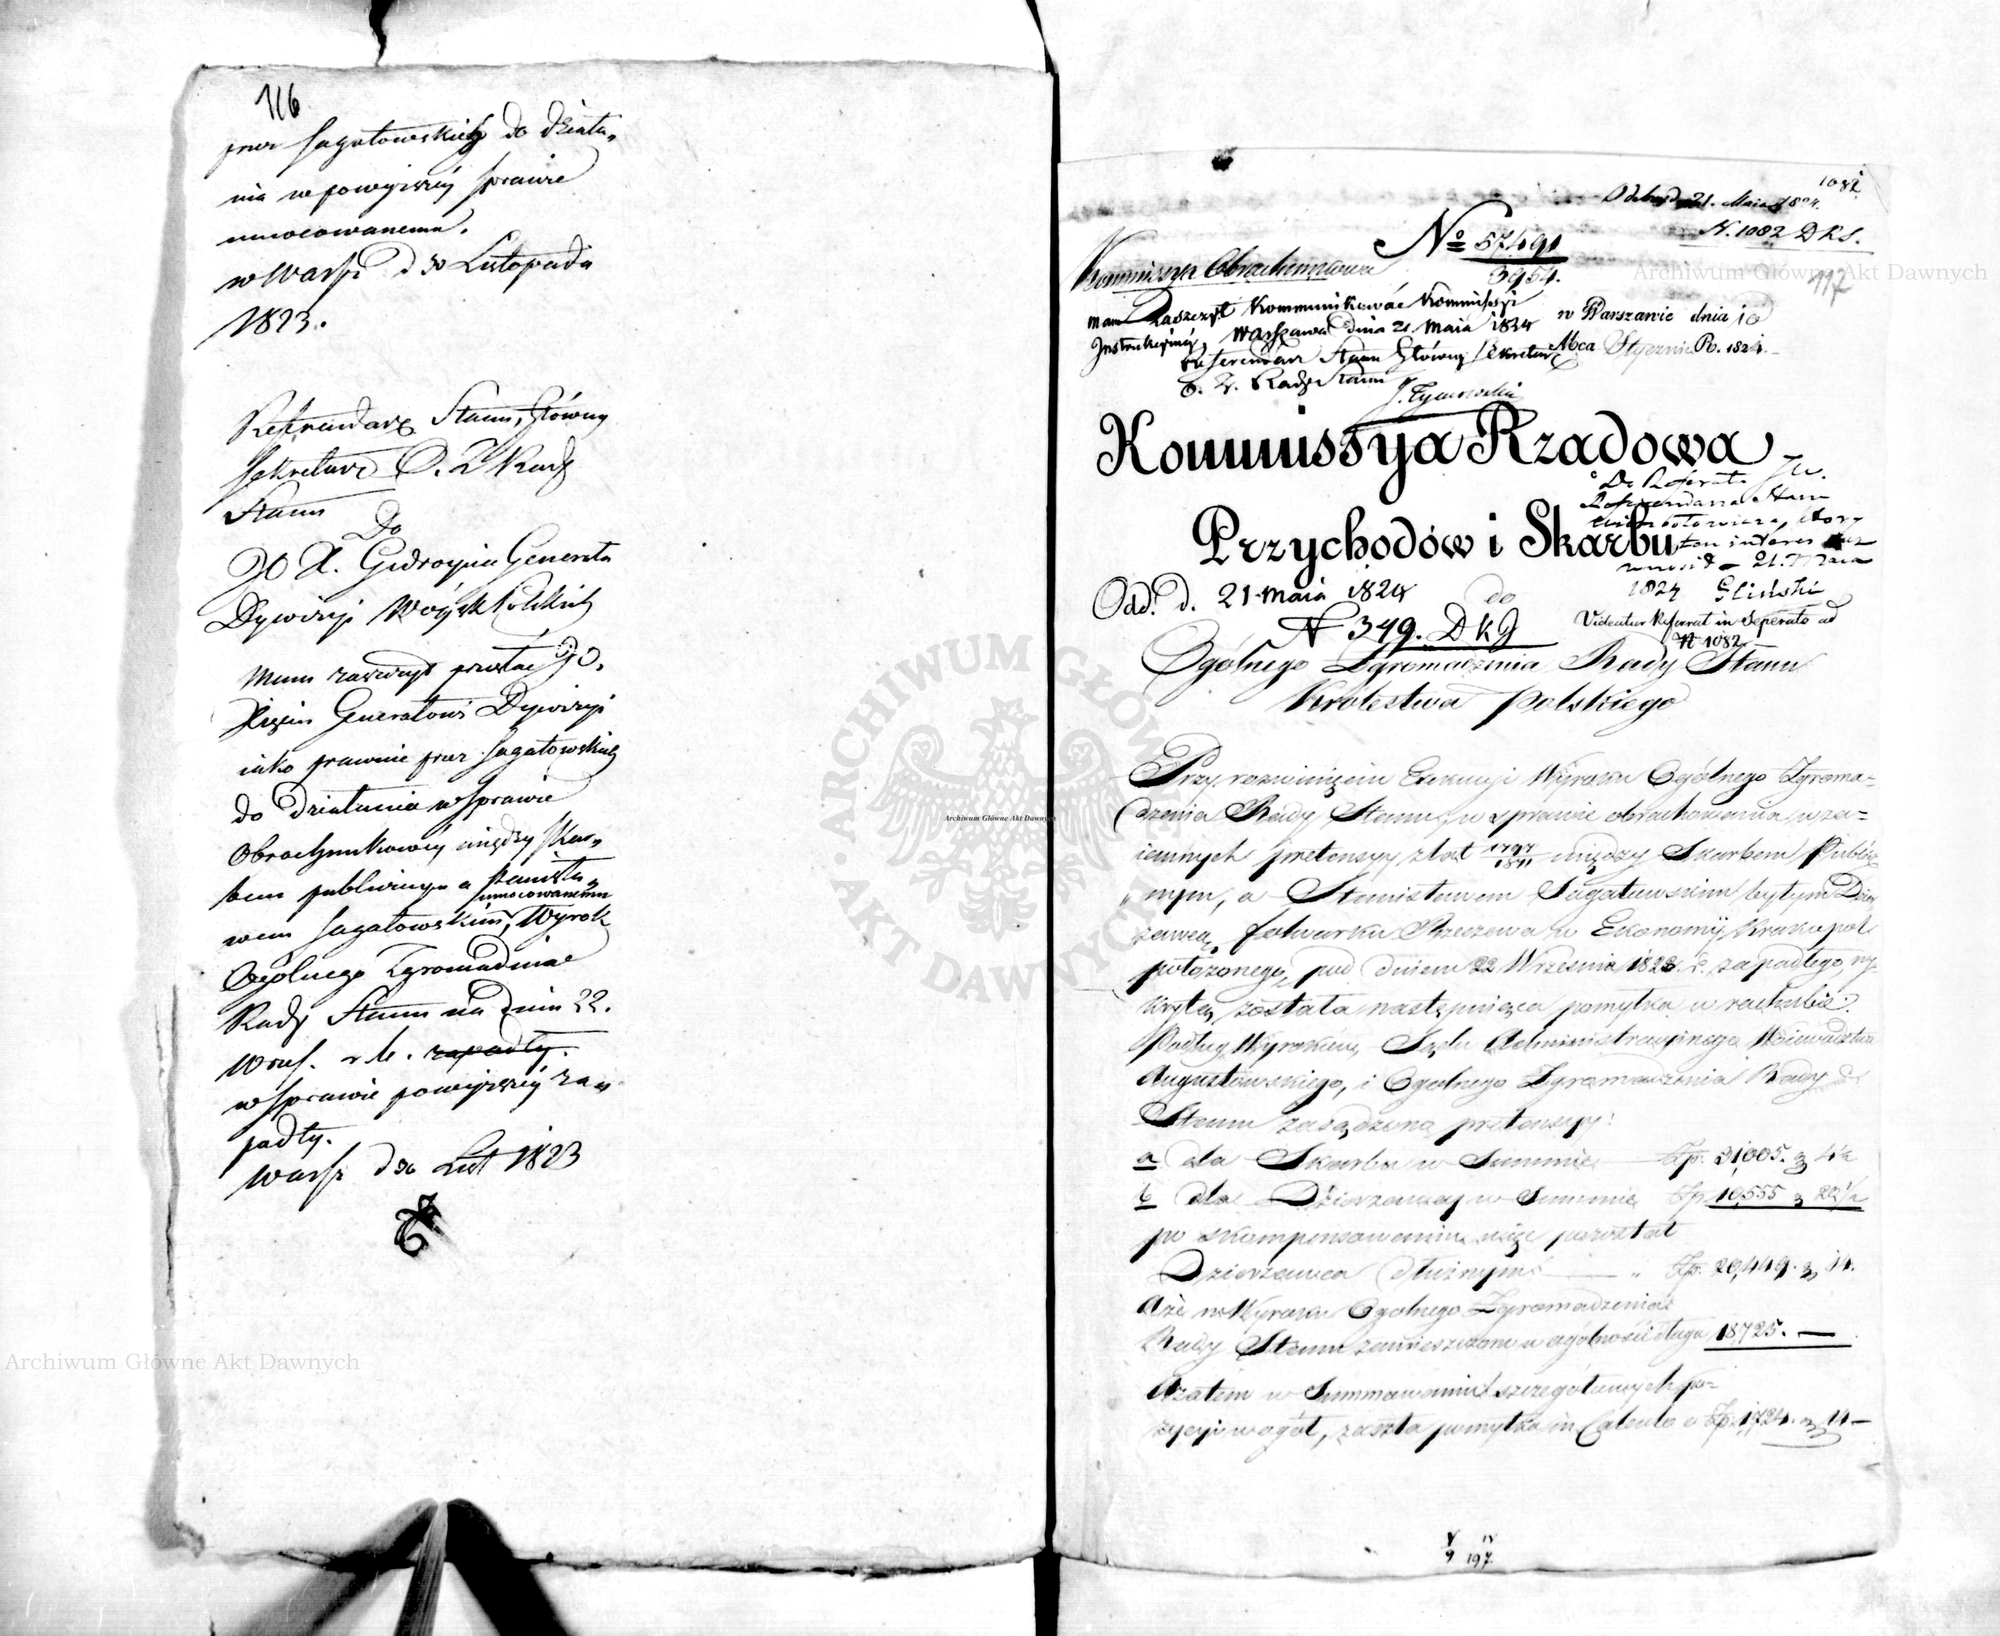 116
przez Sagatowskich do działa„
nia w powyższéy sprawie
umocowanemu.
w Warsz. d 30 Listopada
1823.
Referendarz Stanu, Główny
Sekretarz O. Z Rady
Stanu
Do
JO X. Giedroycia Generała
Dywizyi Woysk Polskich
Mam zaszczyt przesłać JO.
Xięciu Generałowi Dywizyi
iako prawnie przez Sagatowskich
do działania w Sprawie
Obrachunkowéy między Skar„
bem publicznym a Stanisła„
umocowanemu
wem Sagatowskim, Wyrok
Ogólnego Zgromadzenia
Rady Stanu na dniu 22.
Wrześ. r. b. zapadły.
w sprawie powyższéy za„
padły.
Warsz. d 30 List 1823
1082
Odebrano 21. Maia 1824.
N. 1082 DKS.
117
No 57491
3954.
Kommissya Obrachunkowa
mam Zaszczyt Kommunikować Kommissyi
Instrukcyinéy, Warszawa dnia 21 Maia 1824
Referendarz Stanu Główny Sekretarz
O. Z. Rady Stanu
w Warszawie dnia 10
Mca Stycznia Ro. 1824.
Kommissya Rządowa
Przychodów i Skarbu
Do Referatu JW.
Referendarza Stanu
który
ten interes
wnosił d 21. Maia
1824 Gliński
Odd. d. 21 maia 1824
N 349. DKJ
Videatur Referat in Seperato ad
N 1082
do
Ogólnego Zgromadzenia Rady Stanu
Królestwa Polskiego
Przy rozwinięciu Exekucyi Wyroku Ogólnego Zgroma=
dzenia Rady Stanu, w sprawie obrachowania wza=
iemnych pretensyy z lat 1797/1811 między Skarbem Publicz
„nym, a Stanisławem Sagatowskim byłym Dzier
żawcą folwarku Rzeczewa w Ekonomii Krakopol
położonego, pod dniem 22 Września 1823 r. zapadłego, wy
krytą została następuiąca pomyłka w rachubie:
Podług Wyroków, Sądu Administracyinego Woiewództwa
Augustowskiego, i Ogólnego Zgromadzenia Rady
Stanu zasądzono pretensyy:
a dla Skarbu w Summie Zp. 31,005. g 4½
b dla Dzierżawcy w Summie Zp 10,555 g 20½
po skompensowaniu więc pozostał
Dzierżawca dłużnym — „ Zp. 20,449. g 14.
A że w Wyroku Ogólnego Zgromadzenia
Rady Stanu zamieszczono w ogólności długu 18725. —
A zatem w Summowaniu szczegółowych po=
zycyi w ogół, zaszła pomyłka in Calculo o Zp. 1724. g 14 —
V IV
9 197